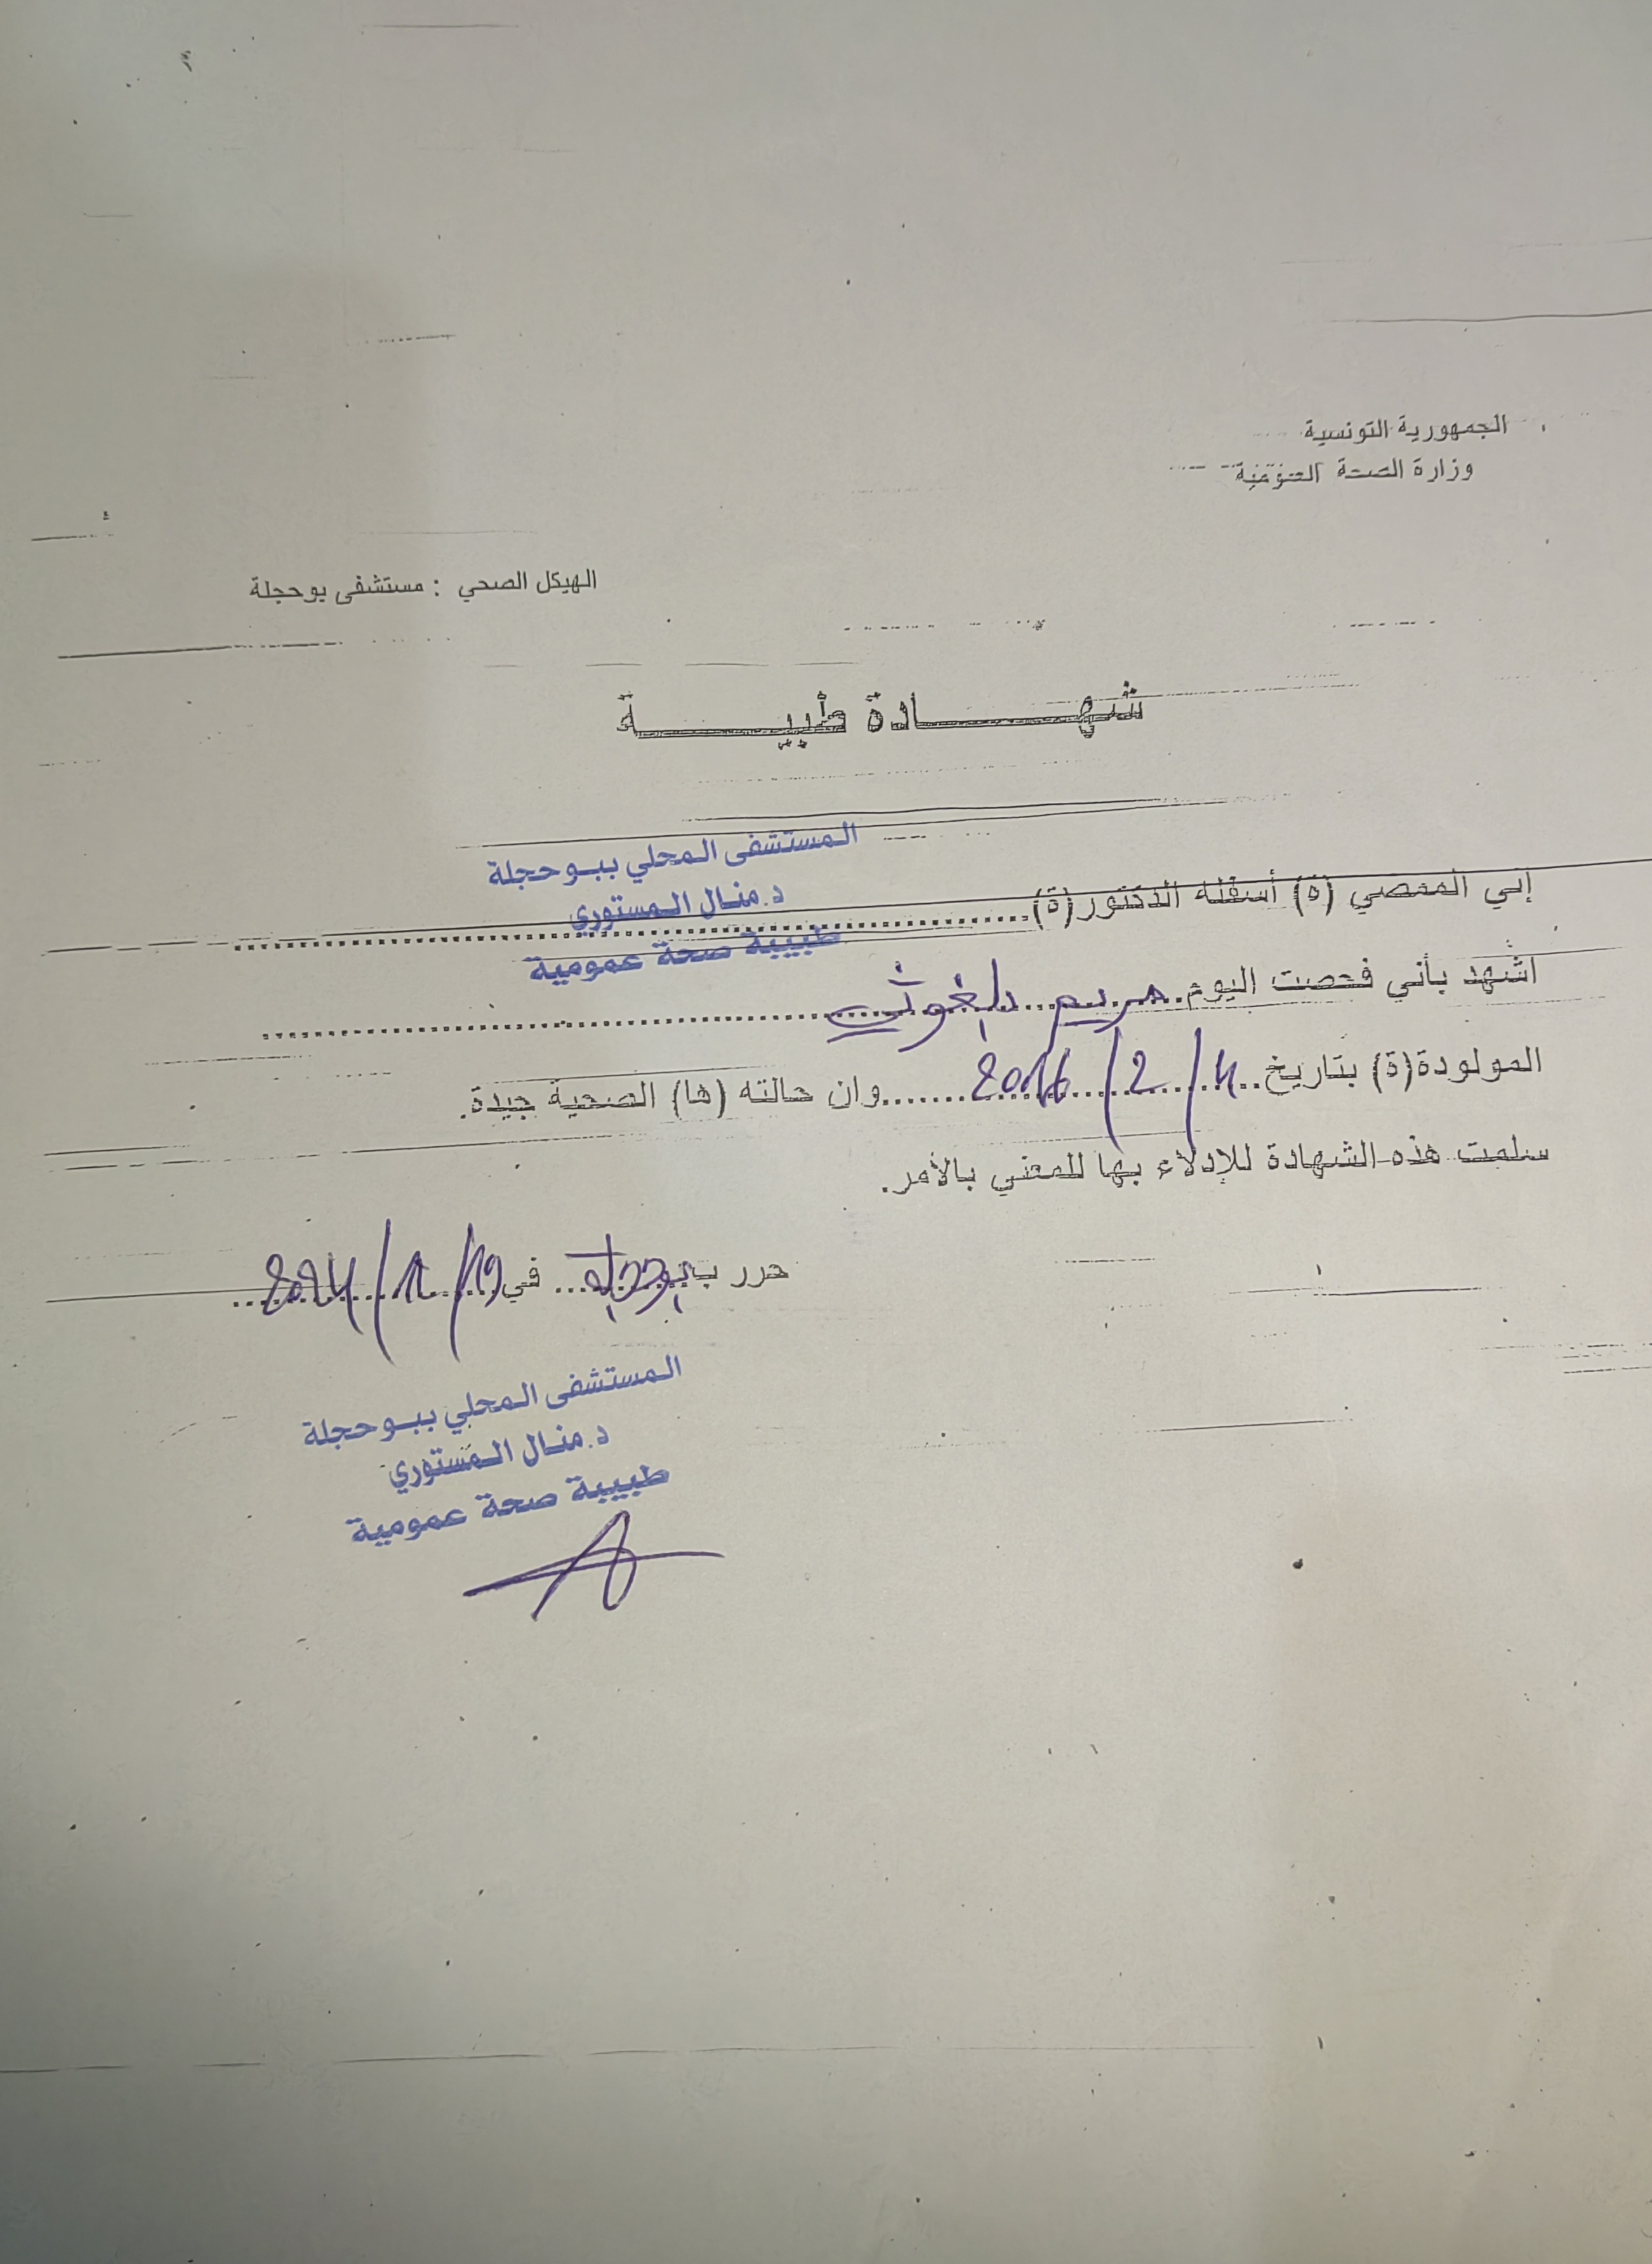 الجمهورية التونسية
وزارة الصحة العمومية
الهيكل الصحي : مستشفى بوحجلة
شهـــــــادة طبيـــــــة
المستشفى المحلي ببوحجلة
د.منال المستوري
طبيبة صحة عمومية
إني الممضي (ة) أسفله الدكتور(ة)
اشهد بأني فحصت اليوم مريم بلغوثي
المولودة(ة) بتاريخ 4/2/2016 وان حالته (ها) الصحية جيدة.
سلمت هذه الشهادة للإدلاء بها للمعني بالأمر.
حرر ب بوحجلة في 19/1/2024
المستشفى المحلي ببوحجلة
د.منال المستوري
طبيبة صحة عمومية